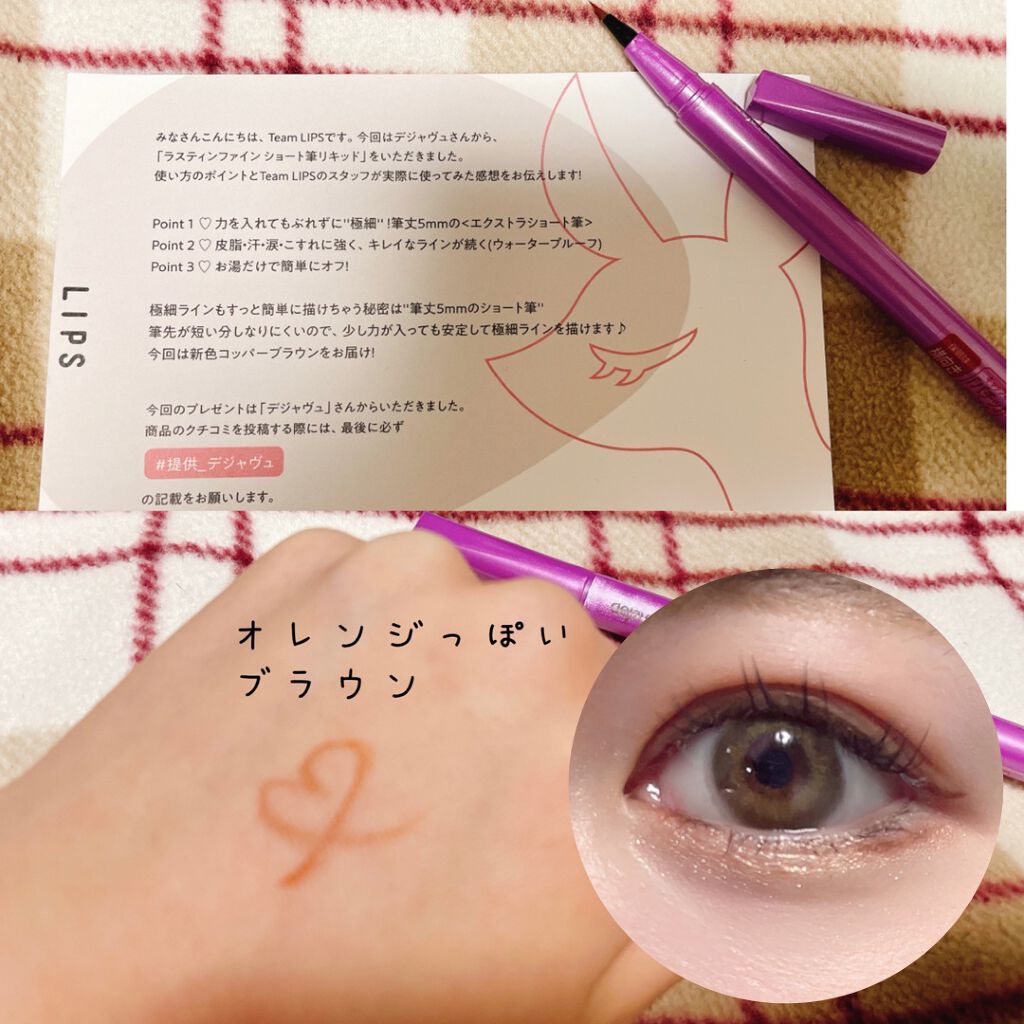 みなさんこんにちは、Team LIPSです。今回はデジャヴュさんから、
「ラスティンファイン ショート筆リキッド」をいただきました。
使い方のポイントとTeam LIPSのスタッフが実際に使ってみた感想をお伝えします!
Point 1 ♡ 力を入れてもぶれずに"極細"!筆丈5mmの<エクストラショート筆>
Point 2 ♡ 皮脂・汗・涙・こすれに強く、キレイなラインが続く(ウォータープルーフ)
Point 3 ♡ お湯だけで簡単にオフ!
LIPS
極細ラインもすっと簡単に描けちゃう秘密は"筆丈5mmのショート筆"
筆先が短い分しなりにくいので、少し力が入っても安定して極細ラインを描けます♪
今回は新色コッパーブラウンをお届け!
今回のプレゼントは「デジャヴュ」さんからいただきました。
商品のクチコミを投稿する際には、最後に必ず
#提供_デジャヴュ
の記載をお願いします。
オレンジっぽい
ブラウン